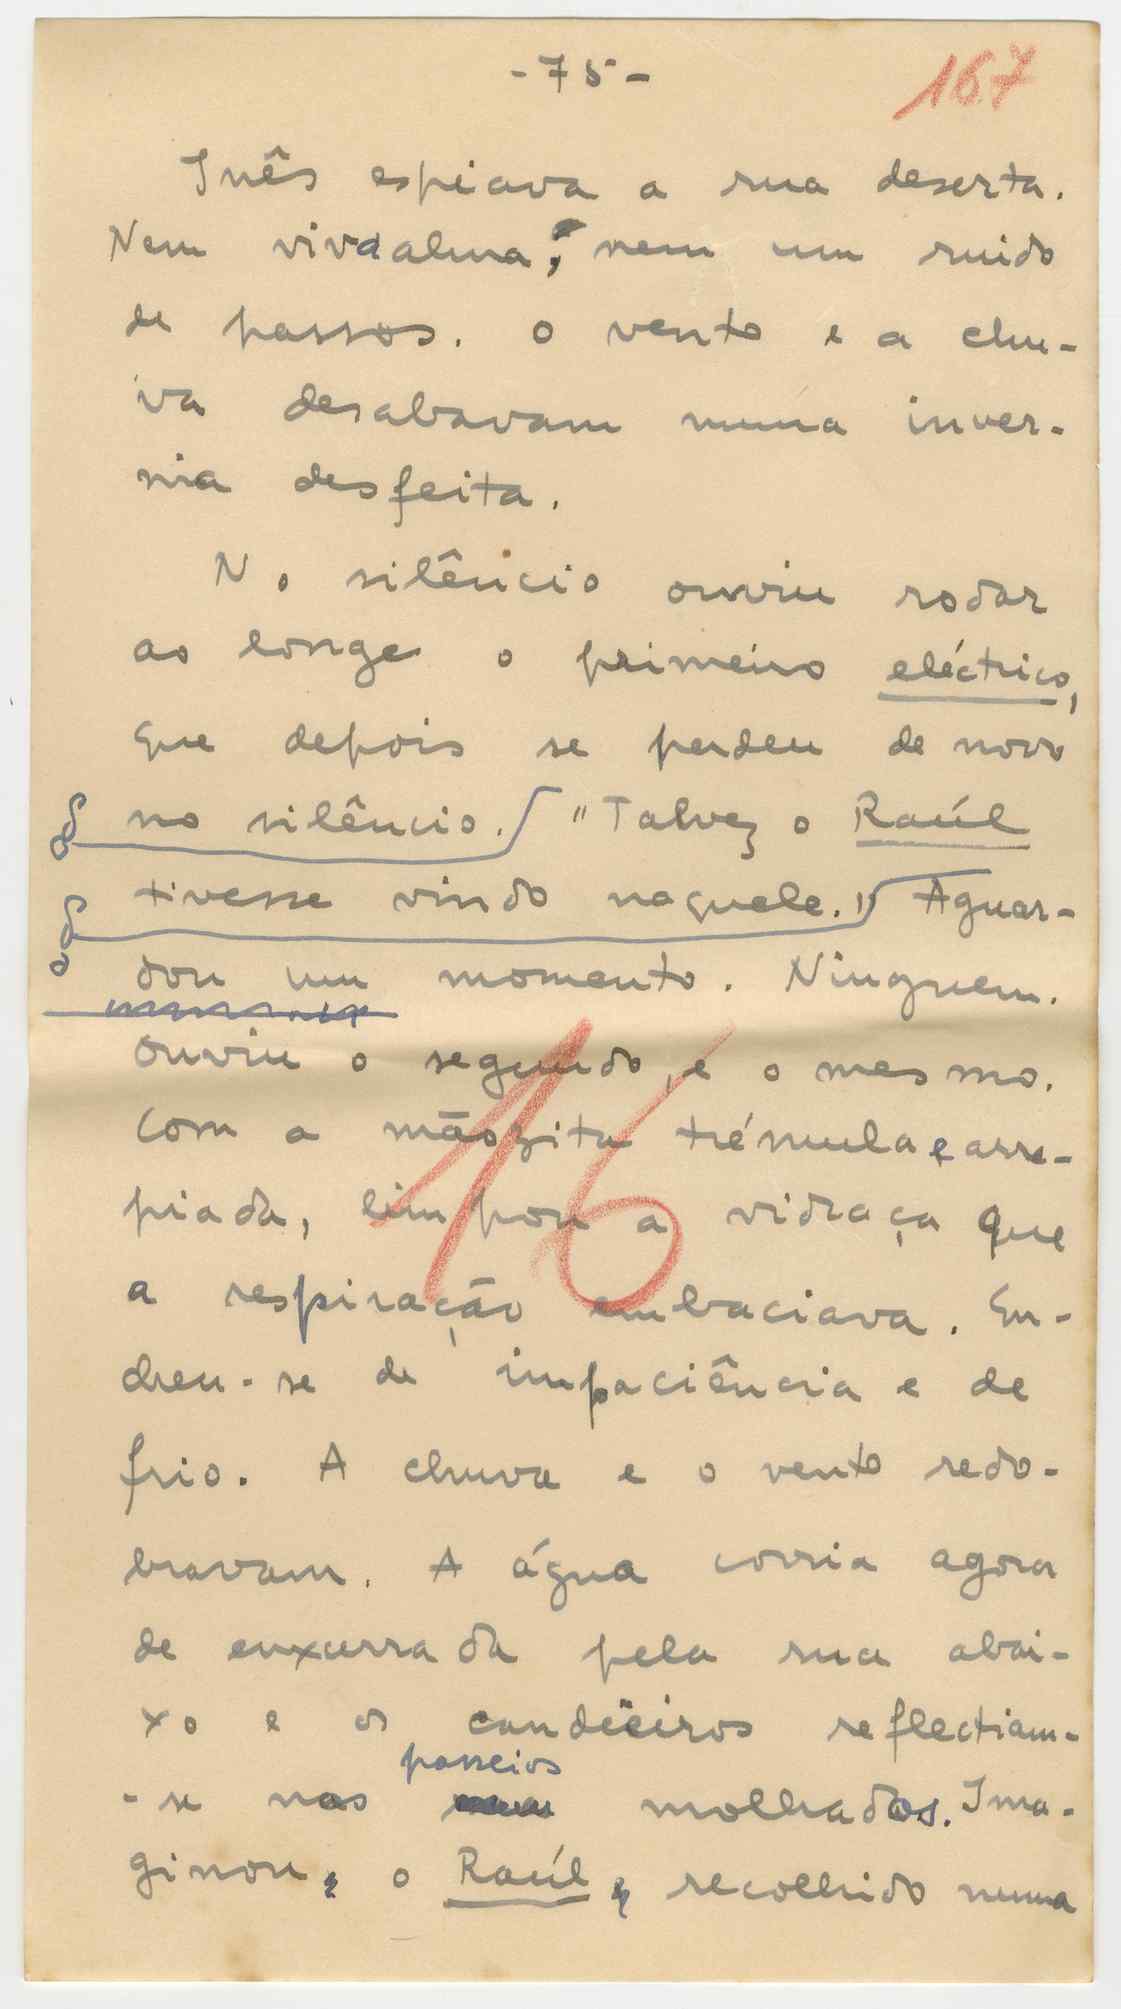 -75-
167
Inês espiava a rua deserta.
Nem vivaalma, nem um ruido
de passos. O vento e a chu-
va desabavam numa inver-
nia desfeita.
No silêncio ouviu rodar
ao longe o primeiro eléctrico,
que depois se perdeu de novo
no silêncio. "Talvez o Raúl
tivesse vindo naquele." Aguar-
dou um momento. Ninguem.
Ouviu o segundo, e o mesmo.
Com a mãozita trémula e arre-
piada, limpou a vidraça que
a respiração embaciava. En-
cheu-se de impaciência e de
frio. A chuva e o vento redo-
bravam. A água corria agora
de enxurrada pela rua abai-
xo e os candeeiros reflectiam-
passeios
-se nos molhados. Ima-
ginou, o Raúl, recolhido numa
16